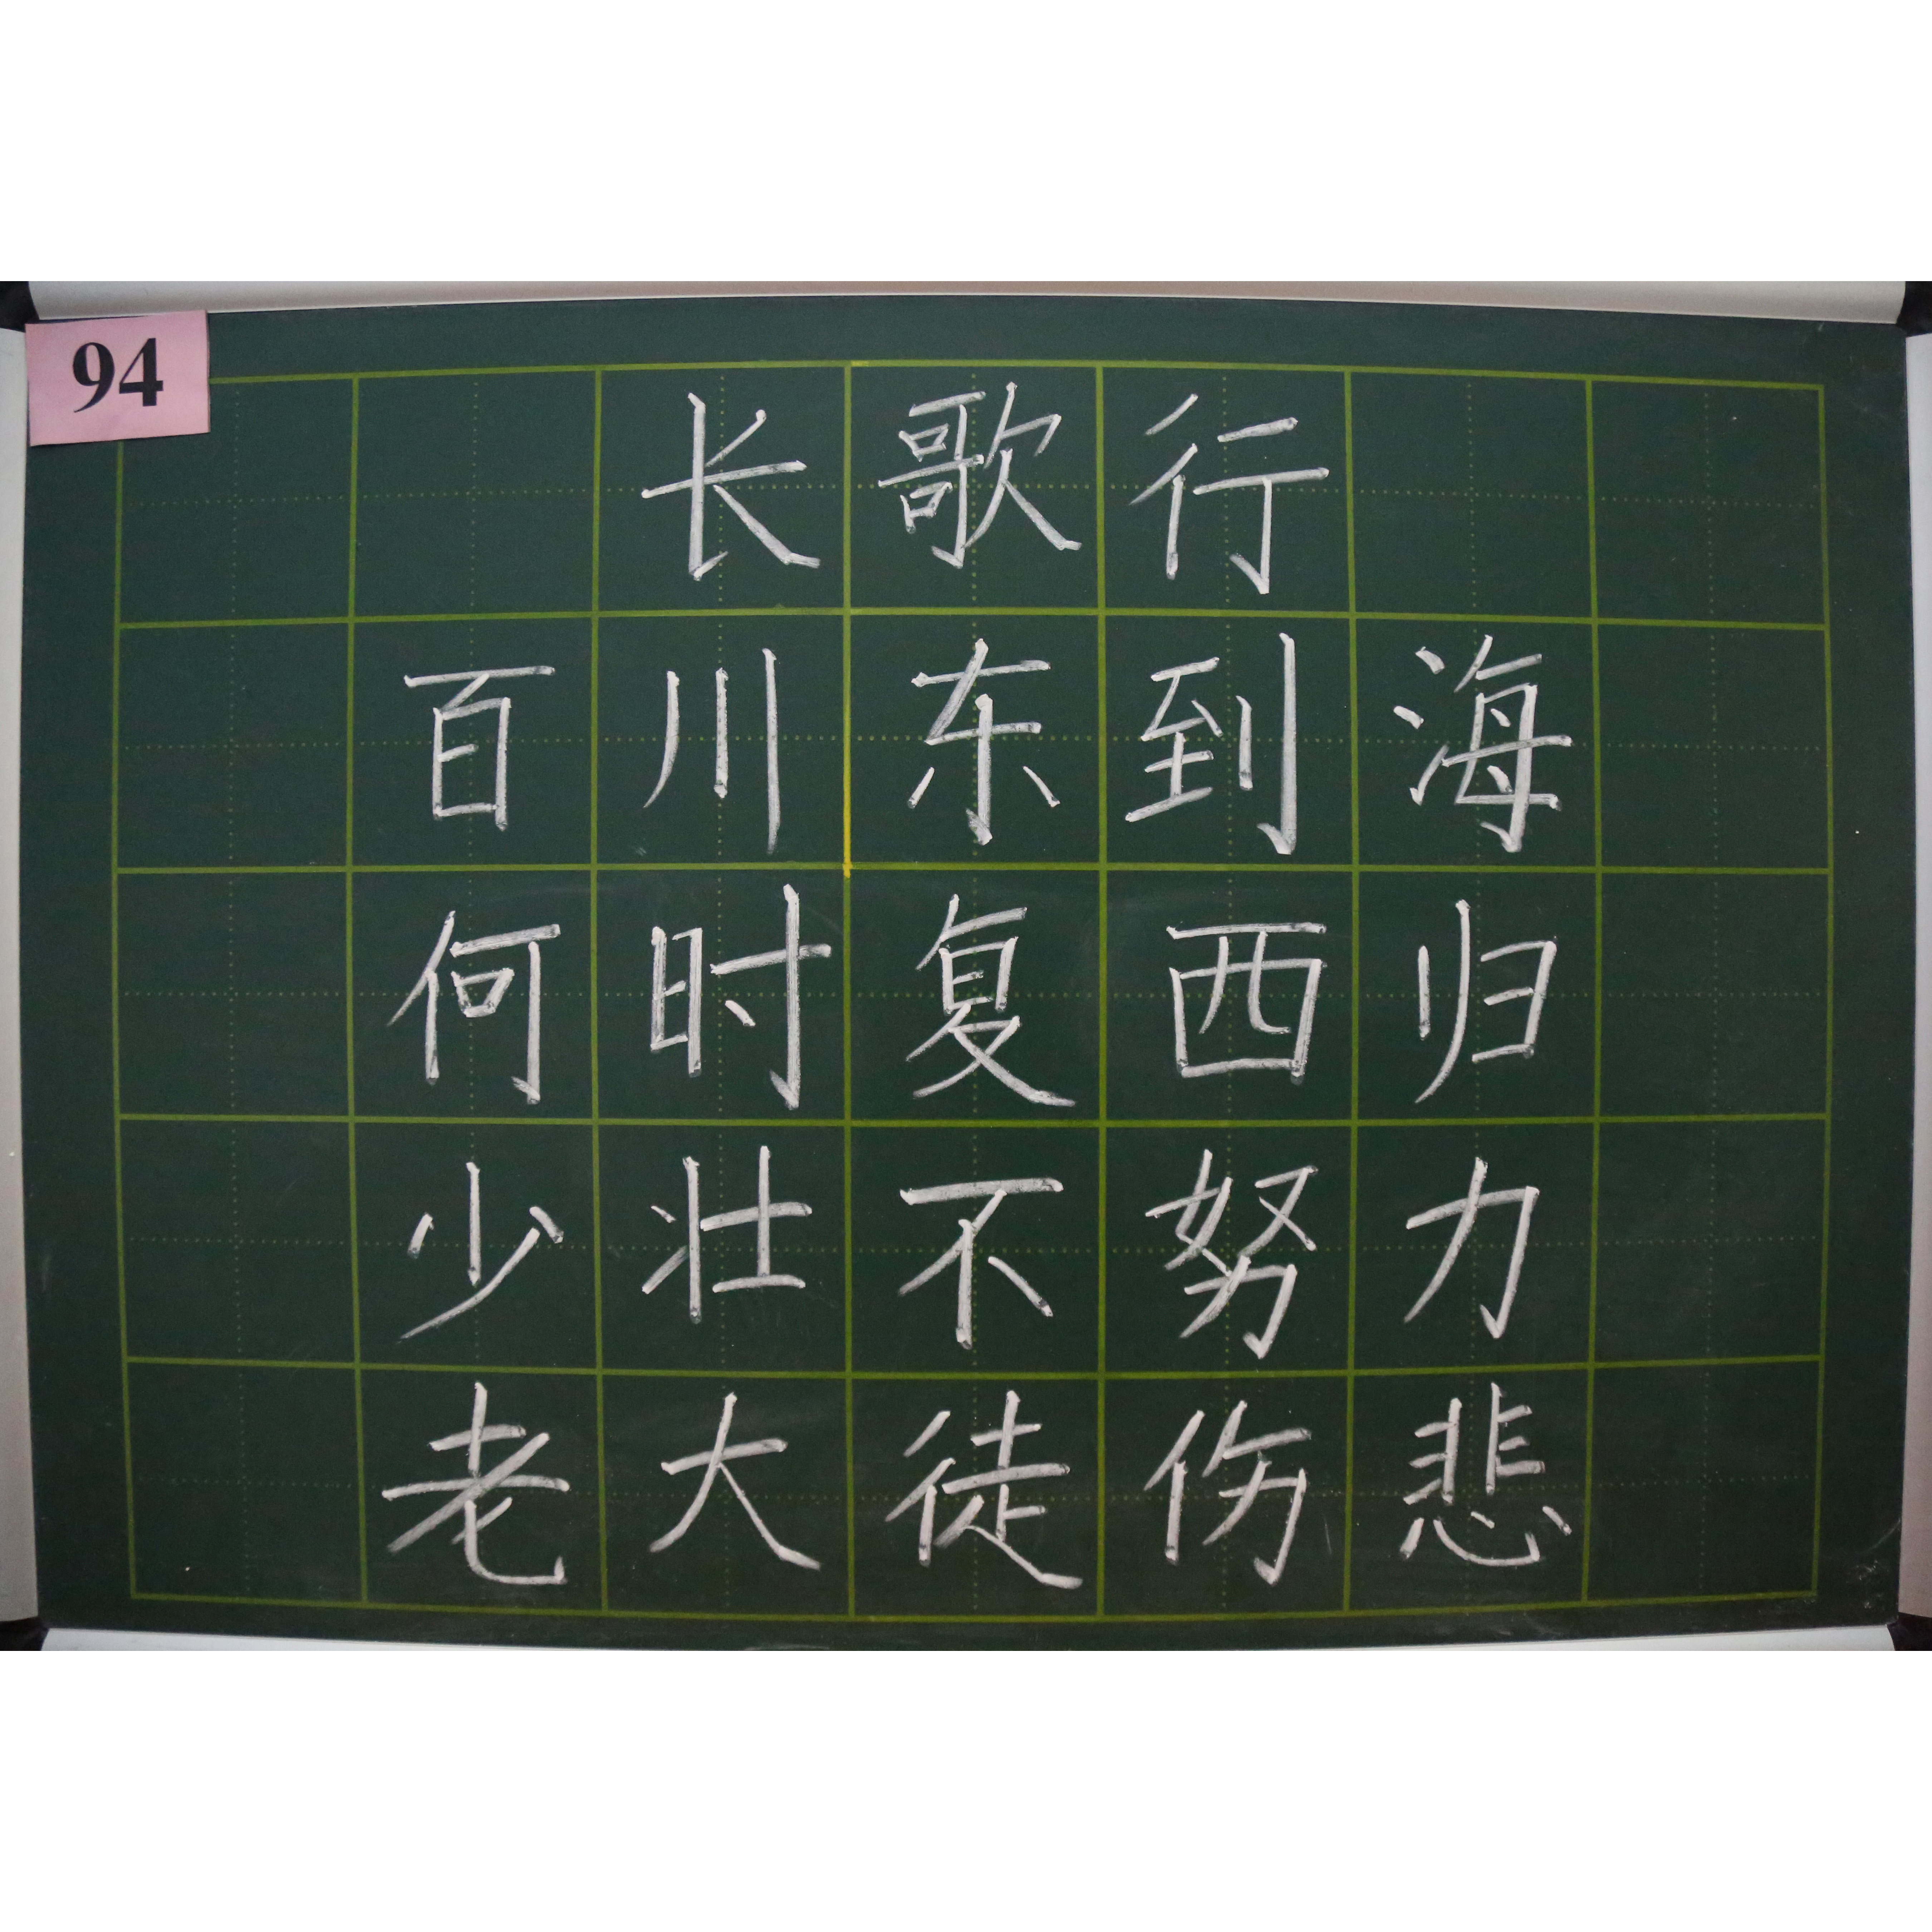 94
长歌行
百川东到海
何时复西归
少壮不努力
老大徒伤悲